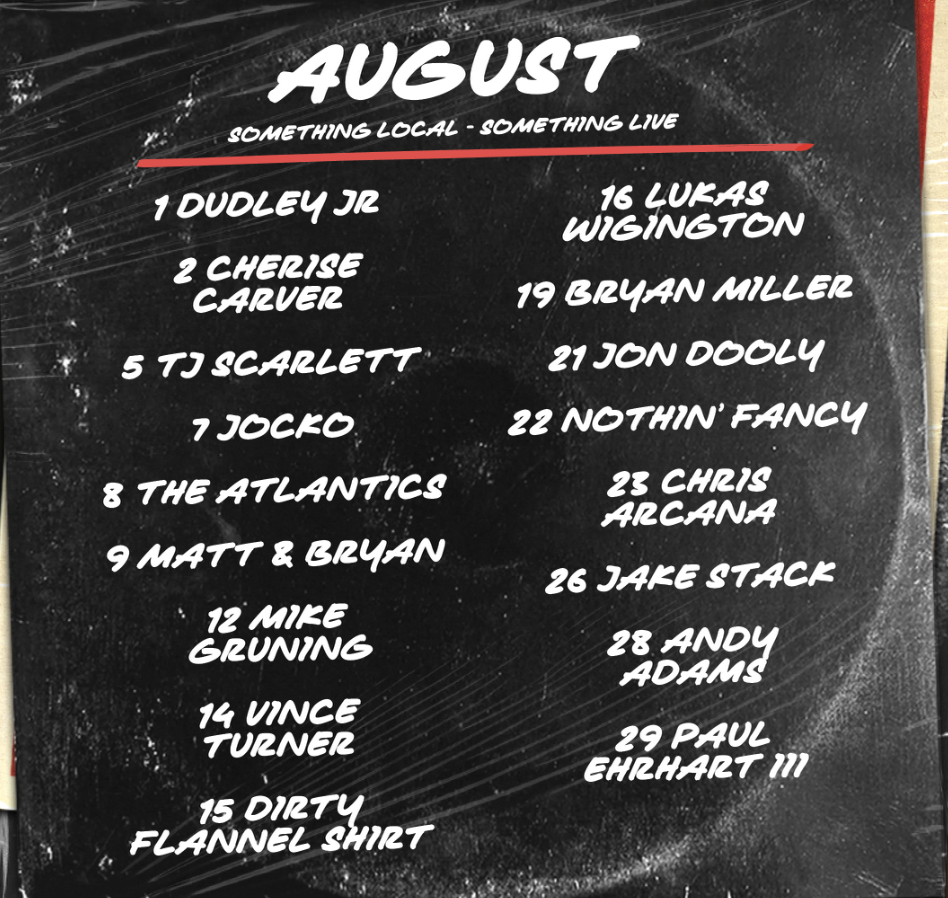 AUGUST
SOMETHING LOCAL - SOMETHING LIVE
1 DUDLEY JR
2 CHERISE
CARVER
5 TJ SCARLETT
7 JOCKO
8 THE ATLANTICS
9 MATT & BRYAN
12 MIKE
GRUNING
14 VINCE
TURNER
15 DIRTY
FLANNEL SHIRT
16 LUKAS
WIGINGTON
19 BRYAN MILLER
21 JON DOOLY
22 NOTHIN' FANCY
23 CHRIS
ARCANA
26 JAKE STACK
28 ANDY
ADAMS
29 PAUL
EHRHART III